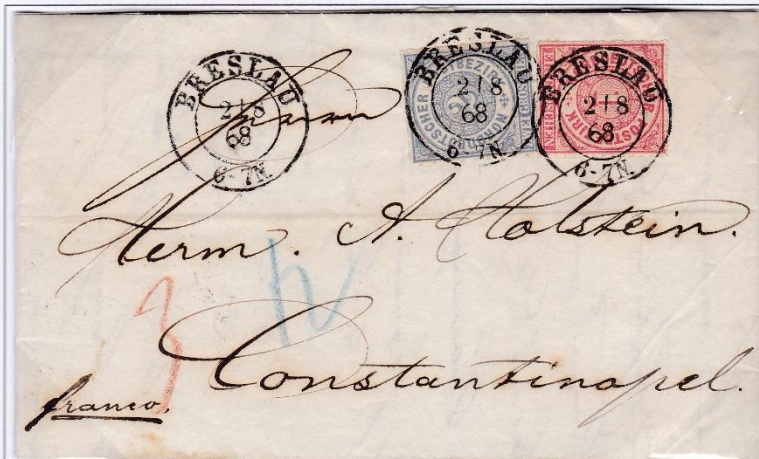 BRESLAU
2 | 8
68
6-7N.
BRESLAU
2 | 8
68
6-7N
BRESLAU
2 | 8
68
6-7N.
Herrn
Herm. A. Holstein.
3
Constantinopel.
franco.